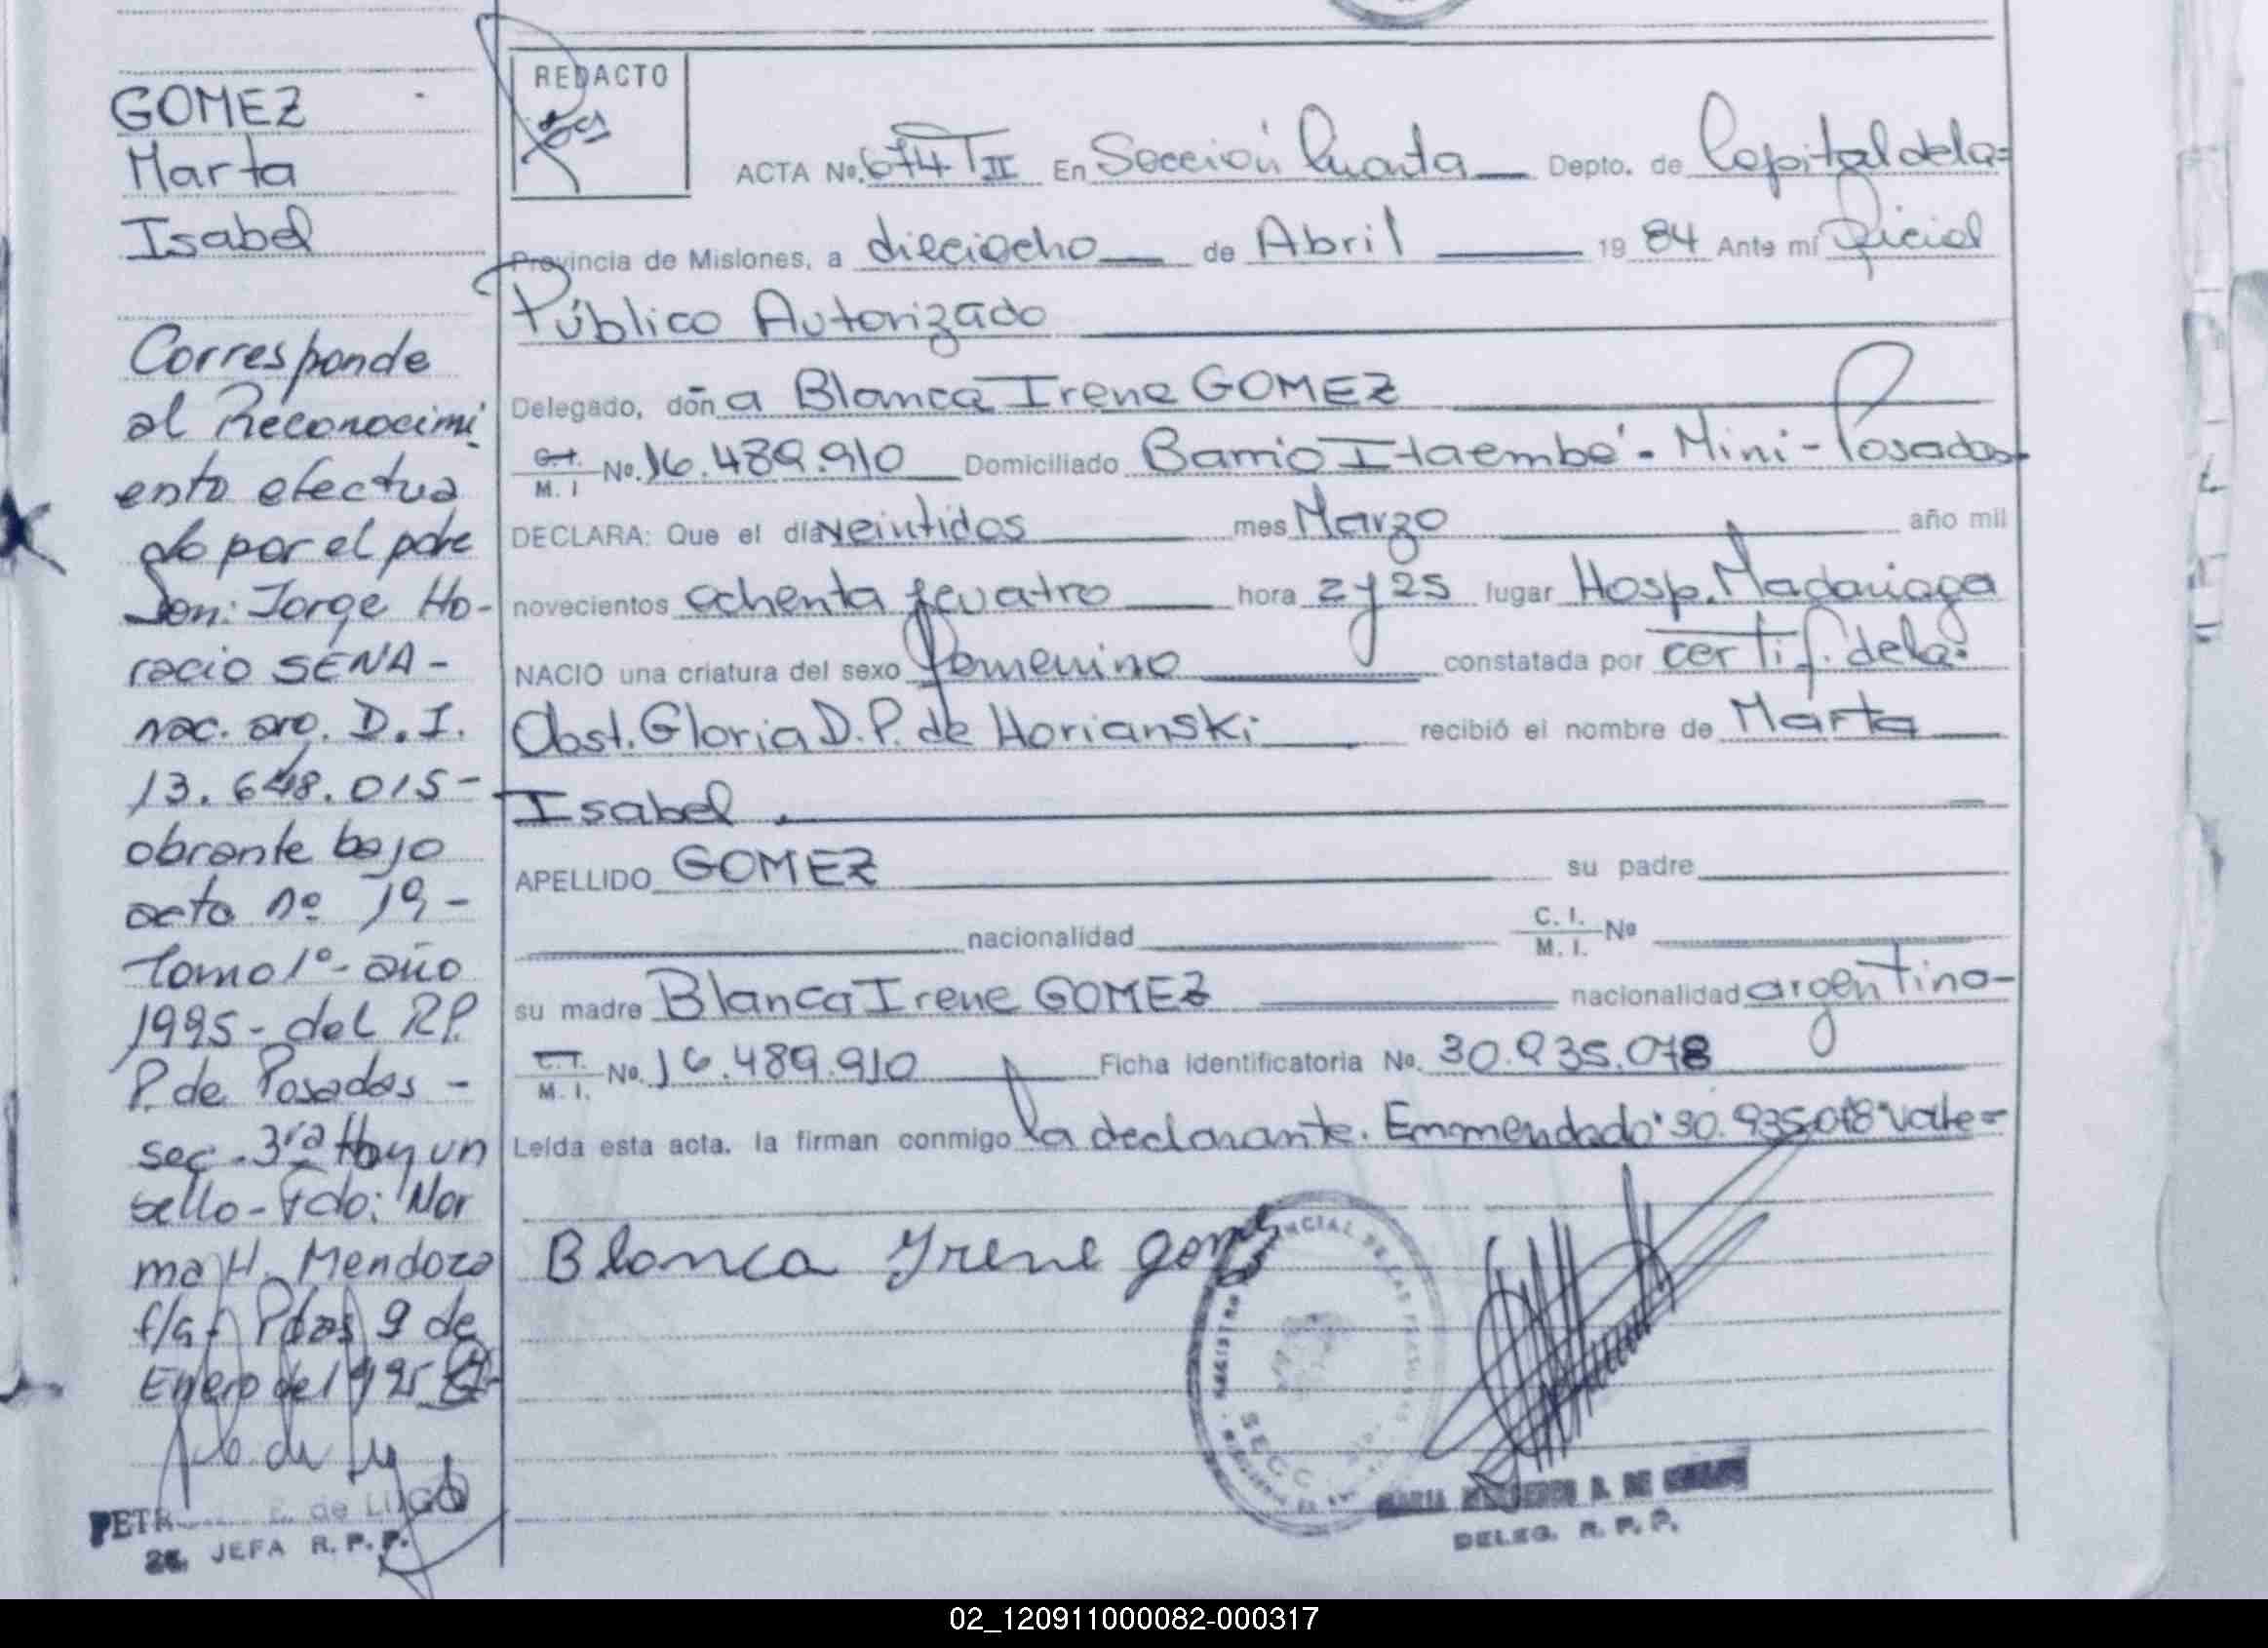 GOMEZ
Marta
Isabel
Corresponde
al Reconocimi
ento efectua
do por el pdre
Don: Jorge Ho-
racio SENA-
nac. arg. D.I.
13.648.015-
obrante bajo
acta nº 19-
Tomo 1º- año
1995- del R.P.
P. de Posadas-
sec. 3ra Hay un
sello- Fdo: Nor
ma H. Mendoza
f/a- Pdas 9 de
Enero de 1995
PETR E. de LUGO
JEFA R.P.P.
REDACTO
ACTA No. 674 T II En Sección Cuarta Depto. de Capital de la=
Provincia de Misiones, a dieciocho de Abril 1984 Ante mí Oficial
Público Autorizado
Delegado, don a Blanca Irene GOMEZ
C.I. M. I No. 16.489.910 Domiciliado Barrio Itaembé - Mini - Posadas-
DECLARA: Que el día veintidos mes Marzo año mil
novecientos ochenta y cuatro hora 2 y 25 lugar Hosp. Madariaga
NACIO una criatura del sexo femenino constatada por certif. de la=
Obst. Gloria D. P. de Horianski recibió el nombre de Marta
Isabel.
APELLIDO GOMEZ su padre
nacionalidad C. I. M. I. No
su madre Blanca Irene GOMEZ nacionalidad argentina-
C.I. M. I. No. 16.489.910 Ficha Identificatoria No. 30.935.078
Leída esta acta, la firman conmigo la declarante. Emmendado "30.935.078" vale=
Blanca Irene Gomez
SECC
MARIA A. DE
DELEG. R. P. P.
02_120911000082-000317